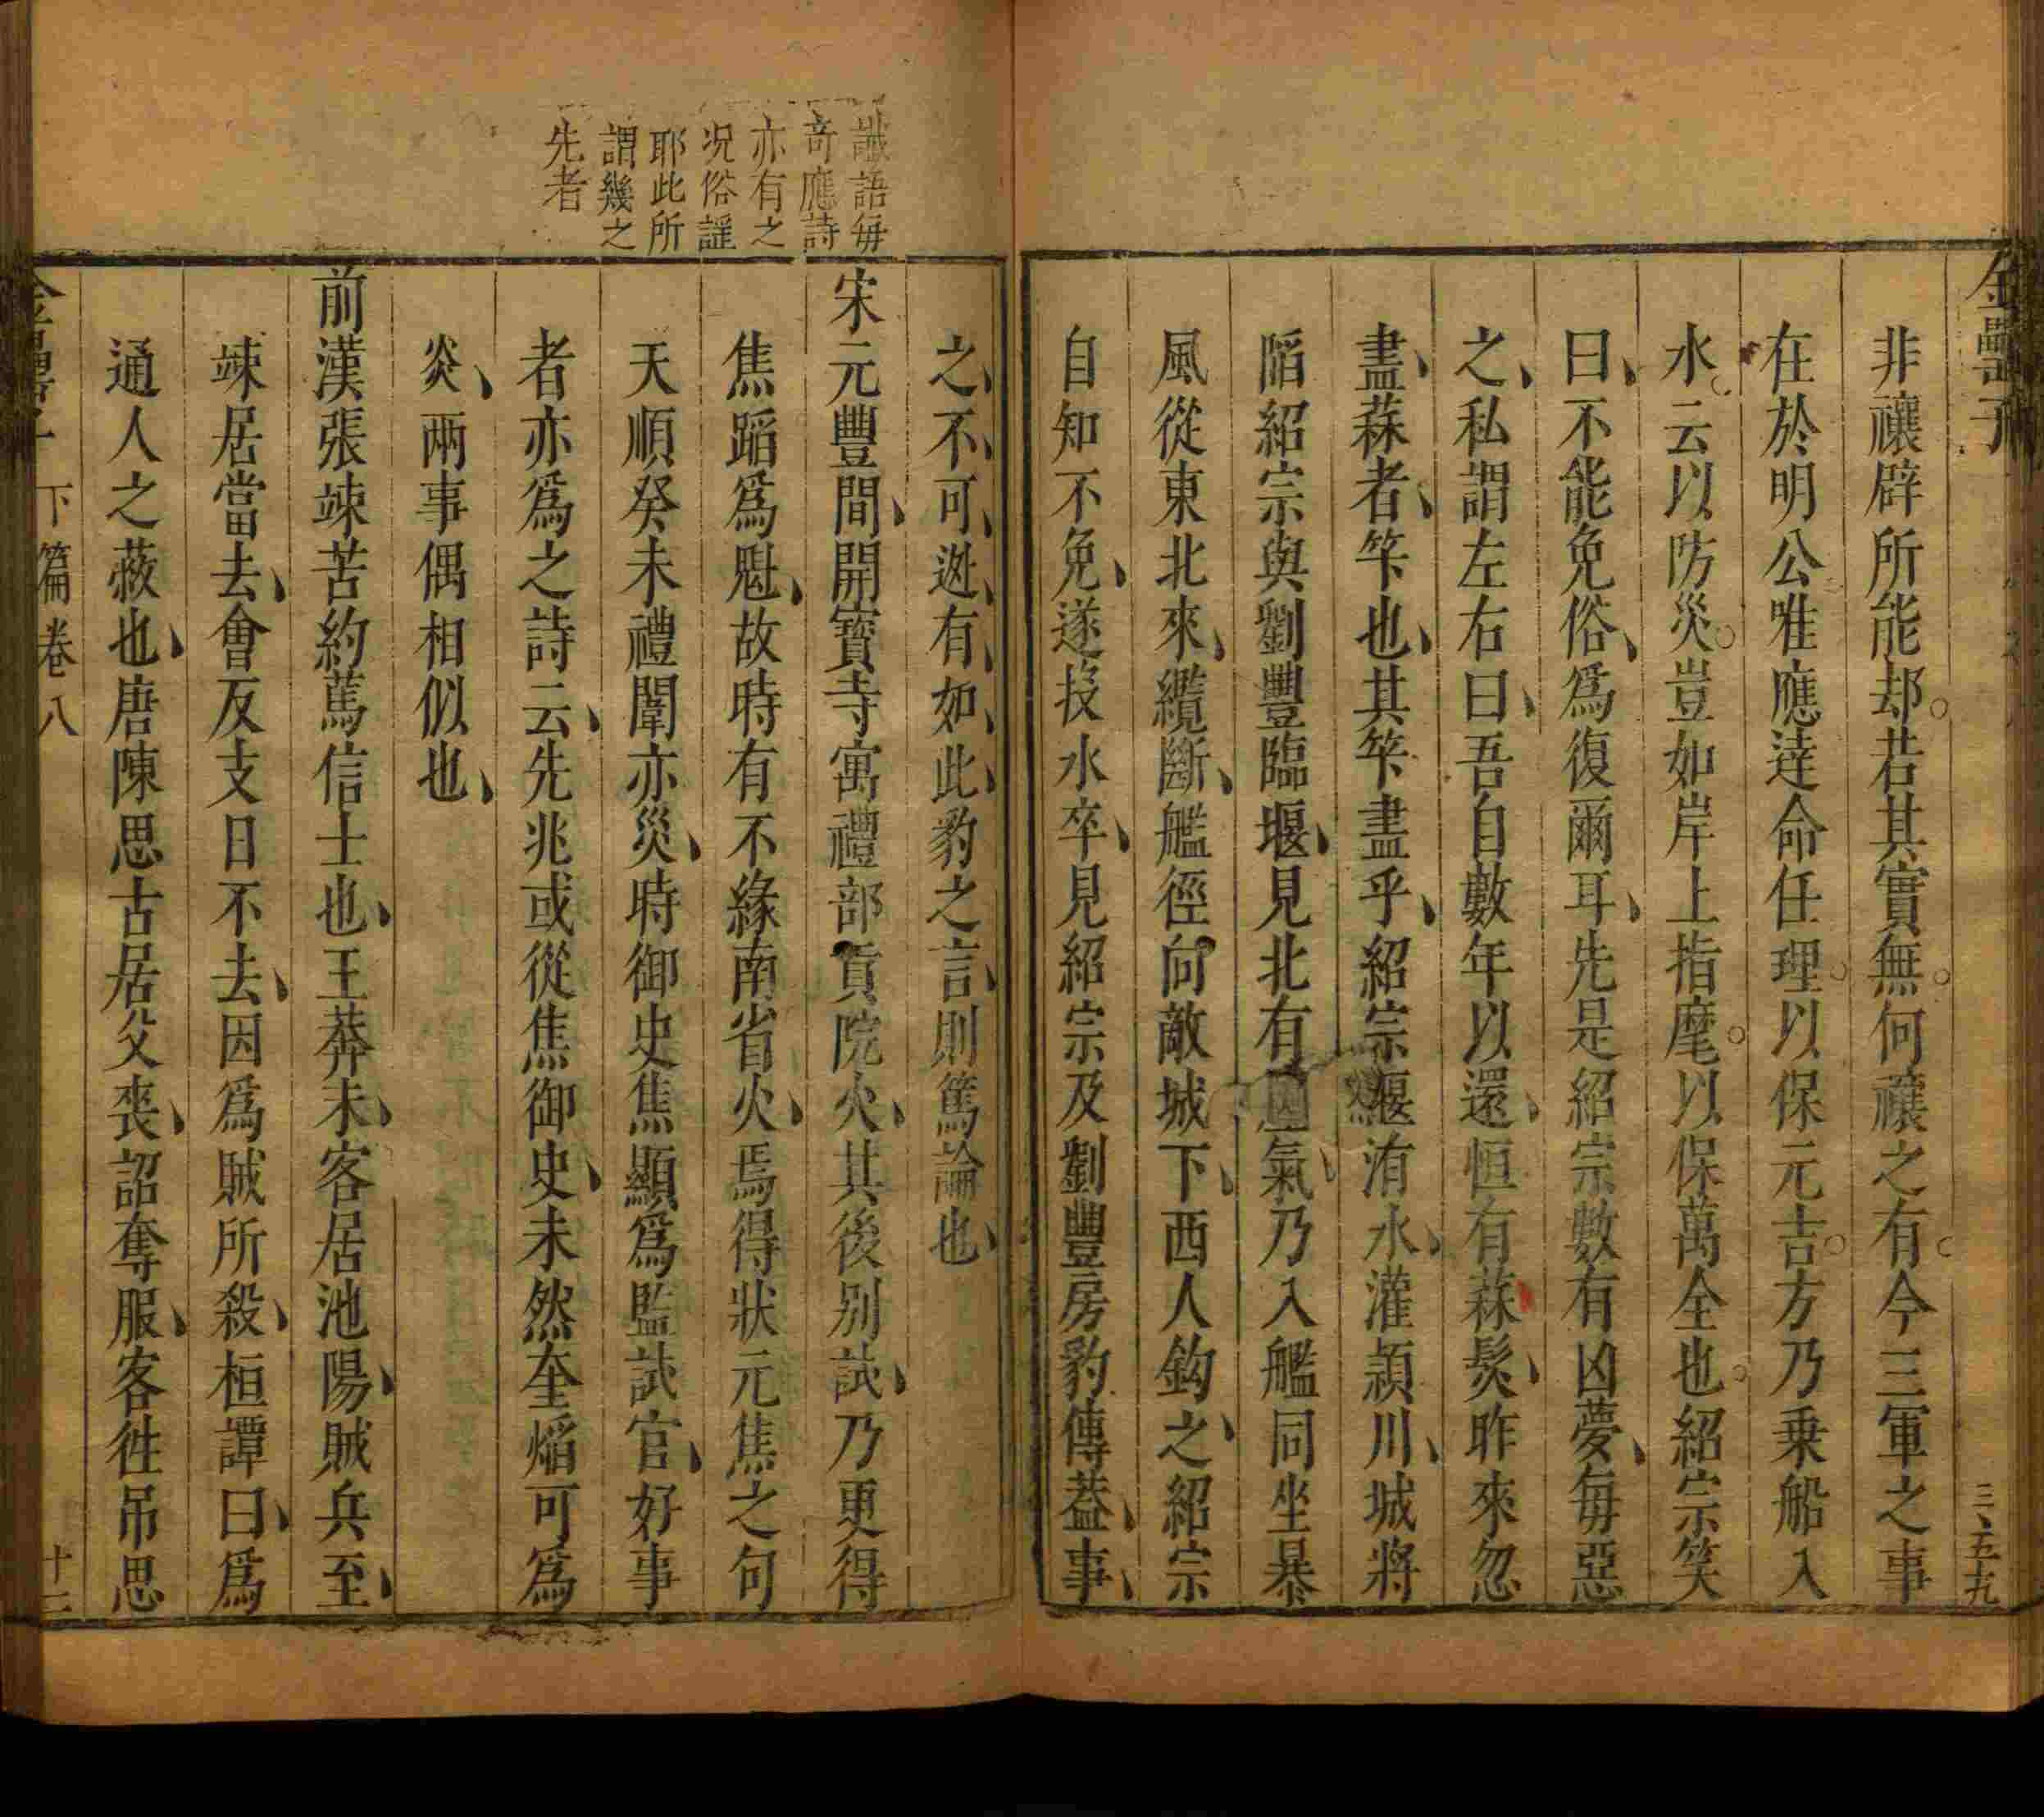 金罍子
三、五十九
非禳辟所能却若其實無何禳之有今三軍之事
在於明公唯應達命任理以保元吉方乃乗船入
水云以防災豈如岸上指麾以保萬全也紹宗笑
曰不能免俗爲復爾耳先是紹宗數有凶夢每惡
之私謂左右曰吾自數年以還恒有蒜髮昨來忽
盡蒜者筭也其筭盡乎紹宗堰洧水灌潁川城將
陷紹宗與劉豐臨堰見北有氣乃入艦同坐暴
風從東北來纜斷艦徑向敵城下西人鈎之紹宗
自知不免遂投水卒見紹宗及劉豐房豹傳葢事
之不可逃有如此豹之言則篤論也
讖語每
奇應詩
亦有之
况俗謡
耶此所
謂幾之
先者
宋元豐間開寳寺寓禮部貢院火其後别試乃更得
焦蹈爲魁故時有不緣南省火焉得狀元焦之句
天順癸未禮闈亦災時御史焦顯爲監試官好事
者亦爲之詩云先兆或從焦御史未然奎焰可爲
炎兩事偶相似也
前漢張竦苦約篤信士也王莽末客居池陽賊兵至
竦居當去會反支日不去因爲賊所殺桓譚曰爲
通人之蔽也唐陳思古居父喪詔奪服客徃吊思
金罍子 下篇卷八
十二